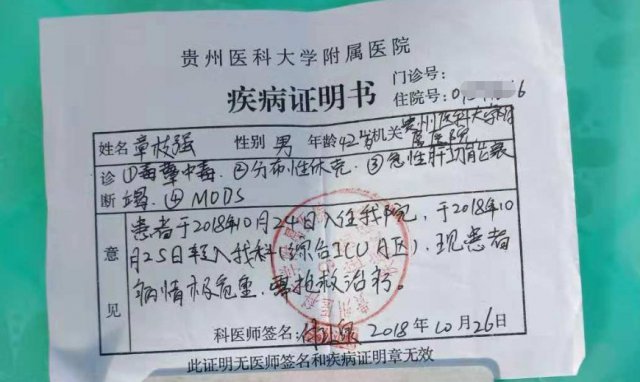 贵州医科大学附属医院
疾病证明书
门诊号:
住院号:
姓名 章枝强 性别 男 年龄 42岁 机关 贵州医科大学附属医院
诊断 ①毒蕈中毒. ②分布性休克. ③急性肝功能衰
竭. ④MODS
意见 患者于2018年10月24日入住我院, 于2018年10
月25日转入我科(综合ICU A区), 现患者
病情极危重. 需抢救治疗.
科医师签名: 2018年10月26日
此证明无医师签名和疾病证明章无效